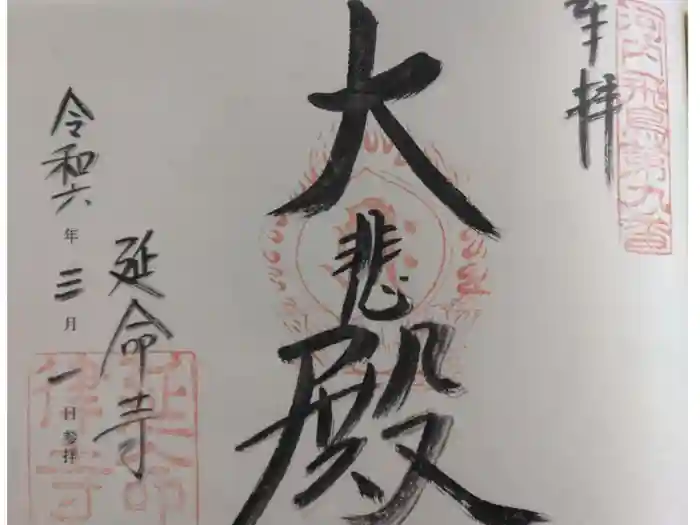 奉拝
河内飛鳥第九番
大悲殿
延命寺
令和六年三月一日参拝
延命
律寺